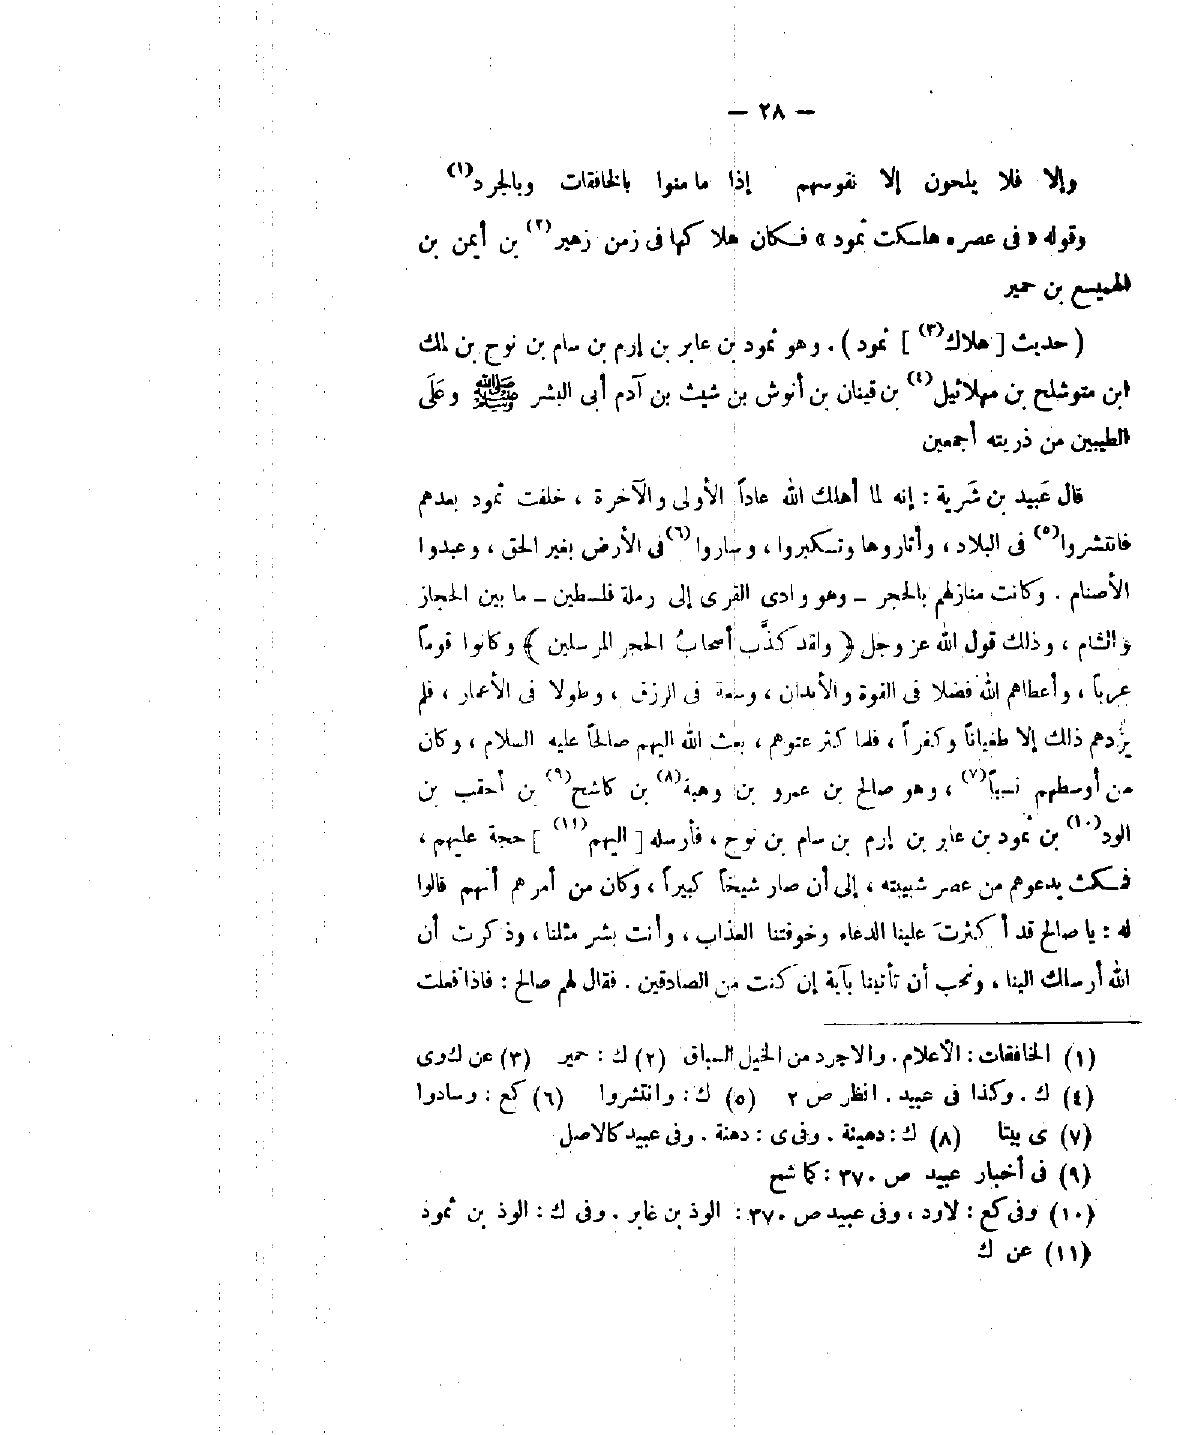 — ٢٨ —
وإلا فلا يلحون إلا نفوسهم إذا ما منوا بالخافقات وبالجرد(١)
وقوله «فى عصره هلكت ثمود» فكان هلاكها فى زمن زهير(٢) بن أيمن بن
الهميسع بن حمير
( حديث [ هلاك(٣) ] ثمود ) . وهو ثمود بن عابر بن إرم بن سام بن نوح بن لمك
ابن متوشلخ بن مهلائيل(٤) بن قينان بن أنوش بن شيث بن آدم أبى البشر ﷺ وعَلَى
الطيبين من ذريته أجمعين
قال عَبيد بن شَرية : إنه لما أهلك الله عاداً الأولى والآخرة ، خلفت ثمود بعدهم
فانتشروا(٥) فى البلاد ، وأثاروها وتكبروا ، وساروا(٦) فى الأرض بغير الحق ، وعبدوا
الأصنام . وكانت منازلهم بالحجر – وهو وادى القرى إلى رملة فلسطين – ما بين الحجاز
والشام ، وذلك قول الله عز وجل ﴿ ولقد كذَّب أصحابُ الحجر المرسلين ﴾ وكانوا قوماً
عرباً ، وأعطاهم الله فضلا فى القوة والأبدان ، وسعة فى الرزق ، وطولا فى الأعمار ، فلم
يزدهم ذلك إلا طغياناً وكفراً ، فلما كثر عتوهم ، بعث الله اليهم صالحاً عليه السلام ، وكان
من أوسطهم نسباً(٧) ، وهو صالح بن عمرو بن وهبة(٨) بن كاشح(٩) بن أحقب بن
الود(١٠) بن ثمود بن عابر بن إرم بن سام بن نوح ، فأرسله [ اليهم(١١) ] حجة عليهم ،
فمكث يدعوهم من عصر شبيبته ، إلى أن صار شيخاً كبيراً ، وكان من أمرهم أنهم قالوا
له : يا صالح قد أكثرتَ علينا الدعاء وخوفتنا العذاب ، وأنت بشر مثلنا ، وذكرت أن
الله أرسلك الينا ، ونحب أن تأتينا بآية إن كنت من الصادقين . فقال لهم صالح : فاذا فعلت
(١) الخافقات : الأعلام . والاجرد من الخيل السباق (٢) ك : حمير (٣) عن ك وى
(٤) ك . وكذا فى عبيد . انظر ص ٢ (٥) ك : وانتشروا (٦) كع : وسادوا
(٧) ى بيتا (٨) ك : دهينة . وفى ى : دهنة . وفى عبيد كالاصل
(٩) فى أخبار عبيد ص ٣٧٠ : كماشح
(١٠) وفى كع : لاود ، وفى عبيد ص ٣٧٠ : الوذ بن غابر . وفى ك : الوذ بن ثموذ
(١١) عن ك